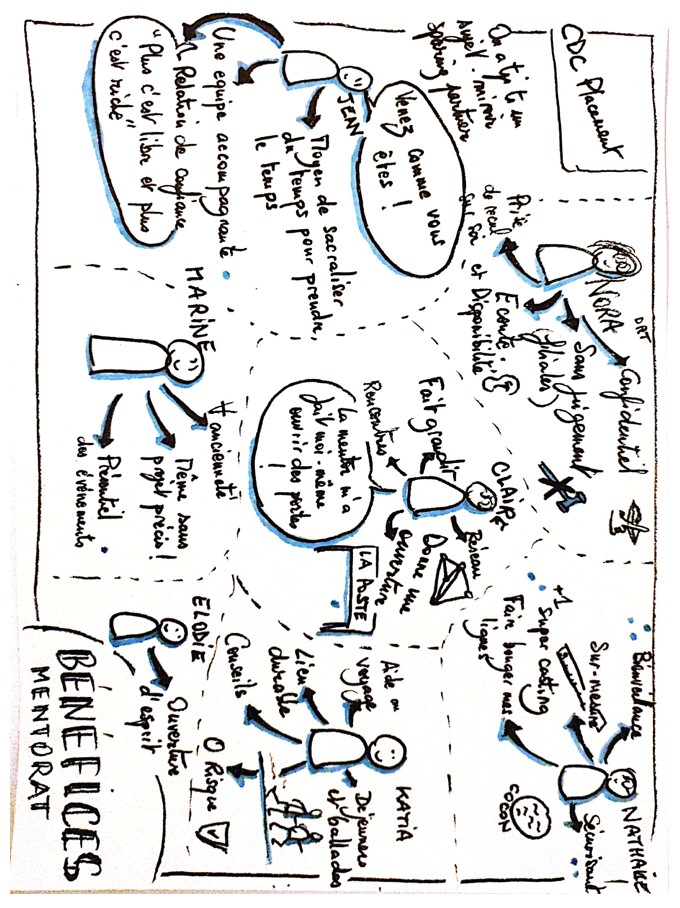 CDC Placement
On a tjs un
sujet. miroir
sparing partner
Venez comme vous
êtes !
JEAN
Moyen de sacraliser
du temps pour prendre
le temps
Une équipe accompagnante
Relation de confiance
"Plus c'est libre et plus
c'est riche"
NORA
DRT
Prise
de recul
sur soi
Ecoute.
et Disponibilité
(filiales)
Sans jugement
Confidentiel
MARINE
ancienneté
Même sans
projet précis !
Présentiel
des événements
CLAIRE
Fait grandir
Rencontres
La mentor m'a
fait moi-même
ouvrir des portes
!
Réseau
Donne une
ouverture
LA POSTE
NATHALIE
Bienveillance
Sur-mesure
+1 super casting
Fait bouger mes
lignes
Sécurisant
COCON
KATIA
Aide au
voyage
Lien
durable
Conseils
Déjeuners
et ballades
0 Risque
ELODIE
Ouverture
d'esprit
BÉNÉFICES
MENTORAT